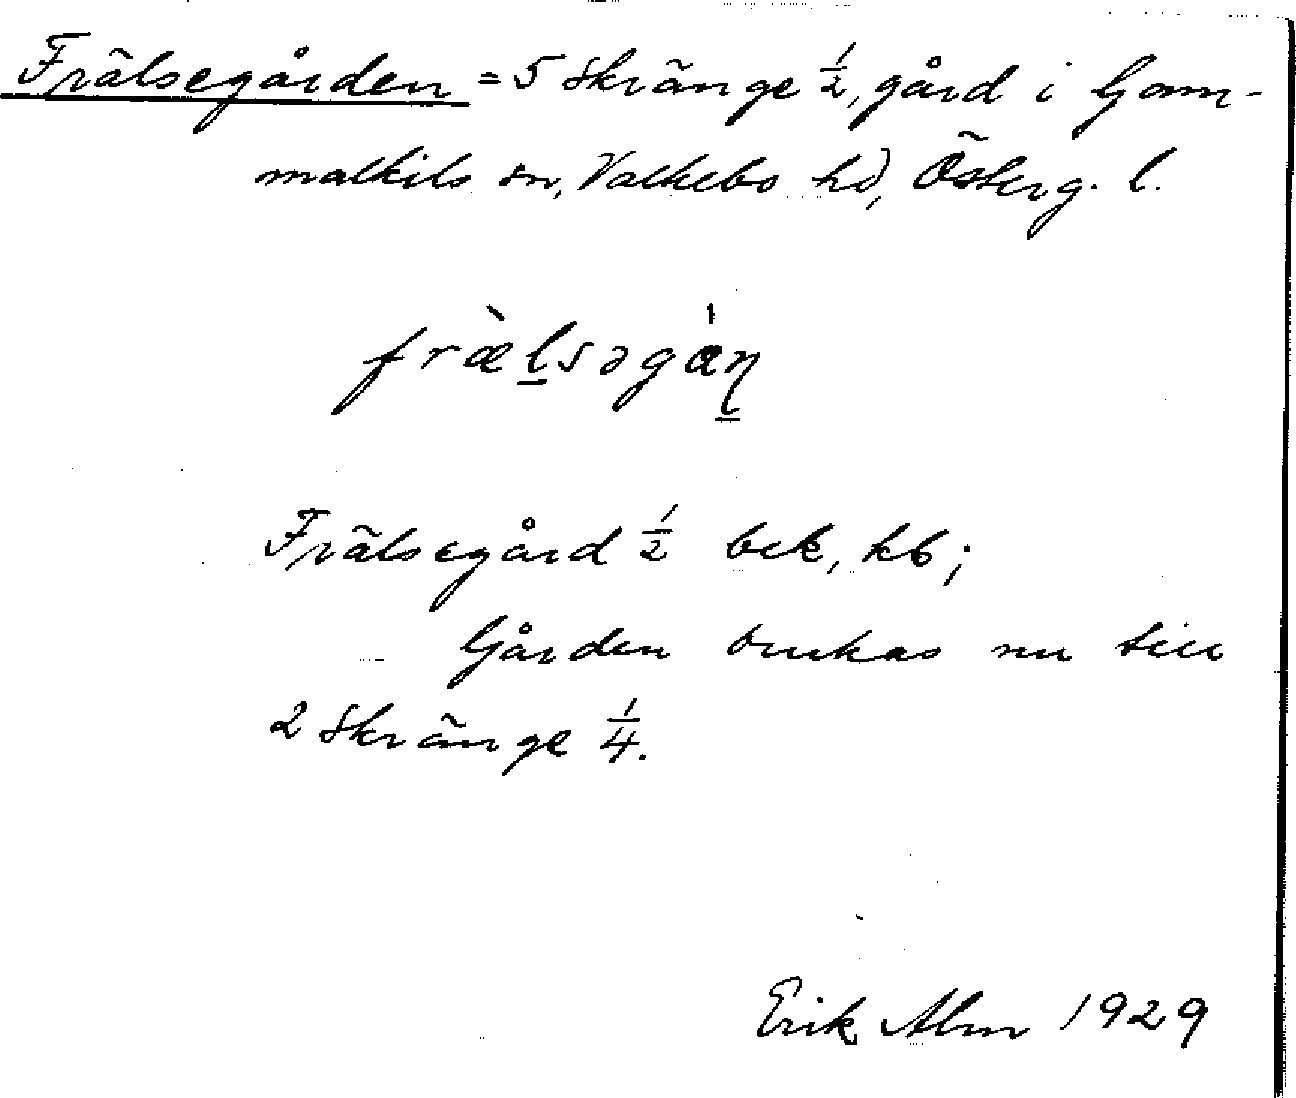 Frälsegården = 5 Skränge 1/2, gård i Gam-
malkils sn, Valkebo hd, Österg. l.
fræ̀lsəgàɳ
Frälsegård 1/2 bek, kb;
Gården brukas nu till
2 Skränge 1/4.
Erik Alm 1929